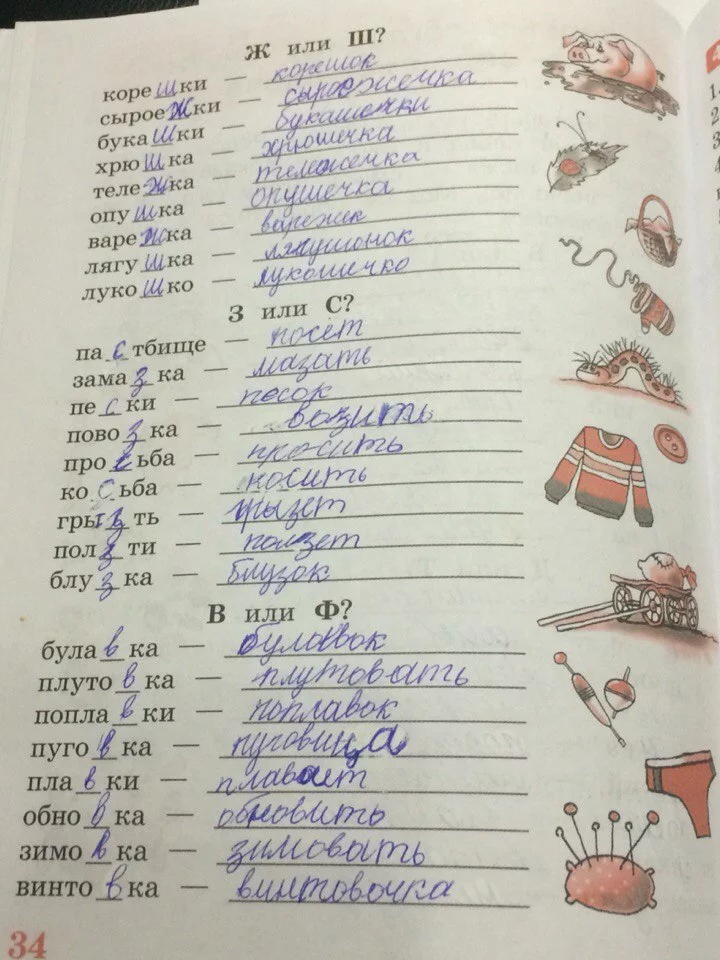 Ж или Ш?
корешки — корешок
сыроежки — сыроежечка
букашки — букашечки
хрюшка — хрюшечка
тележка — тележечка
опушка — опушечка
варежка — варежек
лягушка — лягушонок
лукошко — лукошечко
З или С?
пастбище — посёт
замазка — мазать
пески — песок
повозка — возить
просьба — просить
косьба — носить
грызть — грызет
ползти — ползет
блузка — блузок
В или Ф?
булавка — булавок
плутовка — плутовать
поплавки — поплавок
пуговка — пуговица
плавки — плавает
обновка — обновить
зимовка — зимовать
винтовка — винтовочка
34